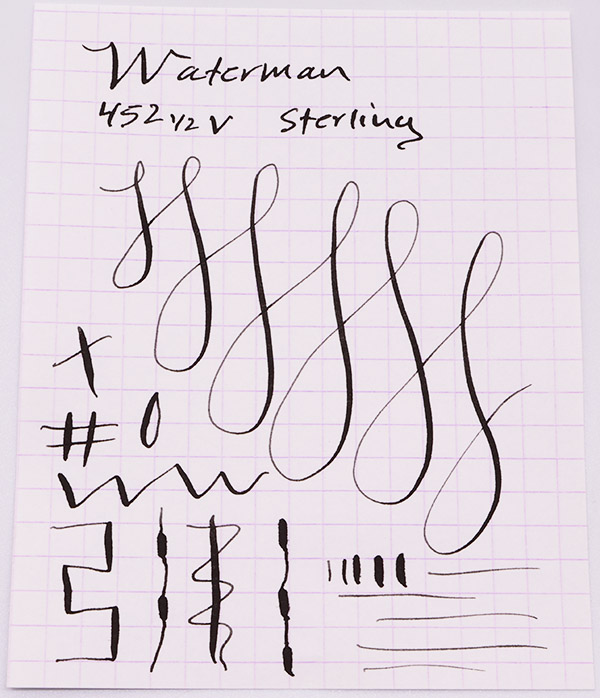 Waterman
452 1/2 V Sterling